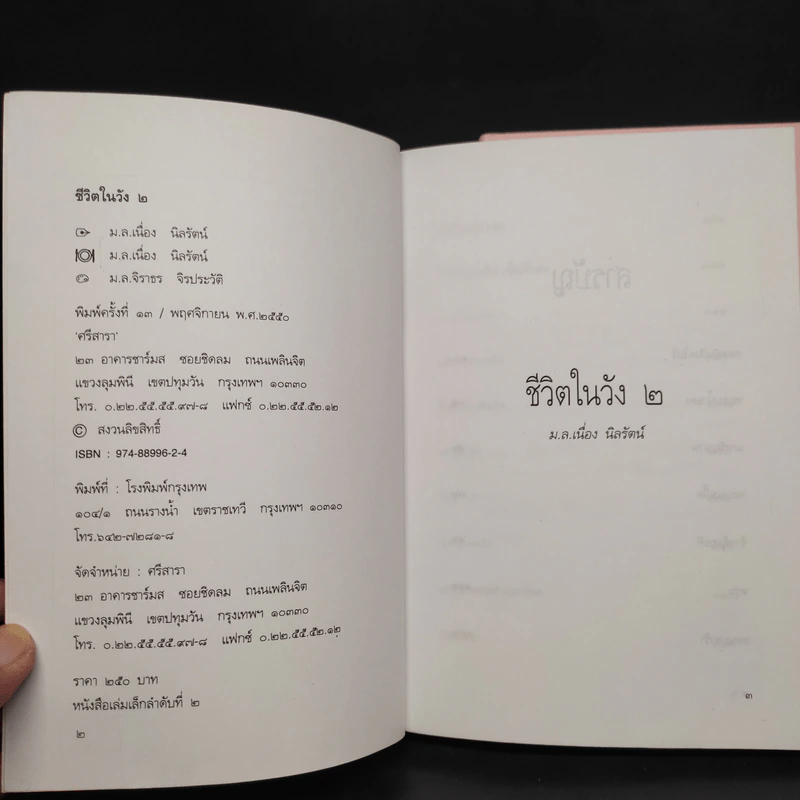 ชีวิตในวัง ๒
ม.ล.เนื่อง นิลรัตน์
ม.ล.เนื่อง นิลรัตน์
ม.ล.จิราธร จิรประวัติ
พิมพ์ครั้งที่ ๑๓ / พฤศจิกายน พ.ศ.๒๕๕๐
'ศรีสารา'
๒๓ อาคารชาร์มส ซอยชิดลม ถนนเพลินจิต
แขวงลุมพินี เขตปทุมวัน กรุงเทพฯ ๑๐๓๓๐
โทร. ๐.๒๒.๕๕.๕๕.๙๗-๘ แฟกซ์ ๐.๒๒.๕๕.๕๒.๑๒
© สงวนลิขสิทธิ์
ISBN : 974-88996-2-4
พิมพ์ที่ : โรงพิมพ์กรุงเทพ
๑๐๔/๑ ถนนรางน้ำ เขตราชเทวี กรุงเทพฯ ๑๐๓๑๐
โทร.๖๔๒-๗๒๘๑-๘
จัดจำหน่าย : ศรีสารา
๒๓ อาคารชาร์มส ซอยชิดลม ถนนเพลินจิต
แขวงลุมพินี เขตปทุมวัน กรุงเทพฯ ๑๐๓๓๐
โทร. ๐.๒๒.๕๕.๕๕.๙๗-๘ แฟกซ์ ๐.๒๒.๕๕.๕๒.๑๒
ราคา ๒๕๐ บาท
หนังสือเล่มเล็กลำดับที่ ๒
๒
ชีวิตในวัง ๒
ม.ล.เนื่อง นิลรัตน์
๓